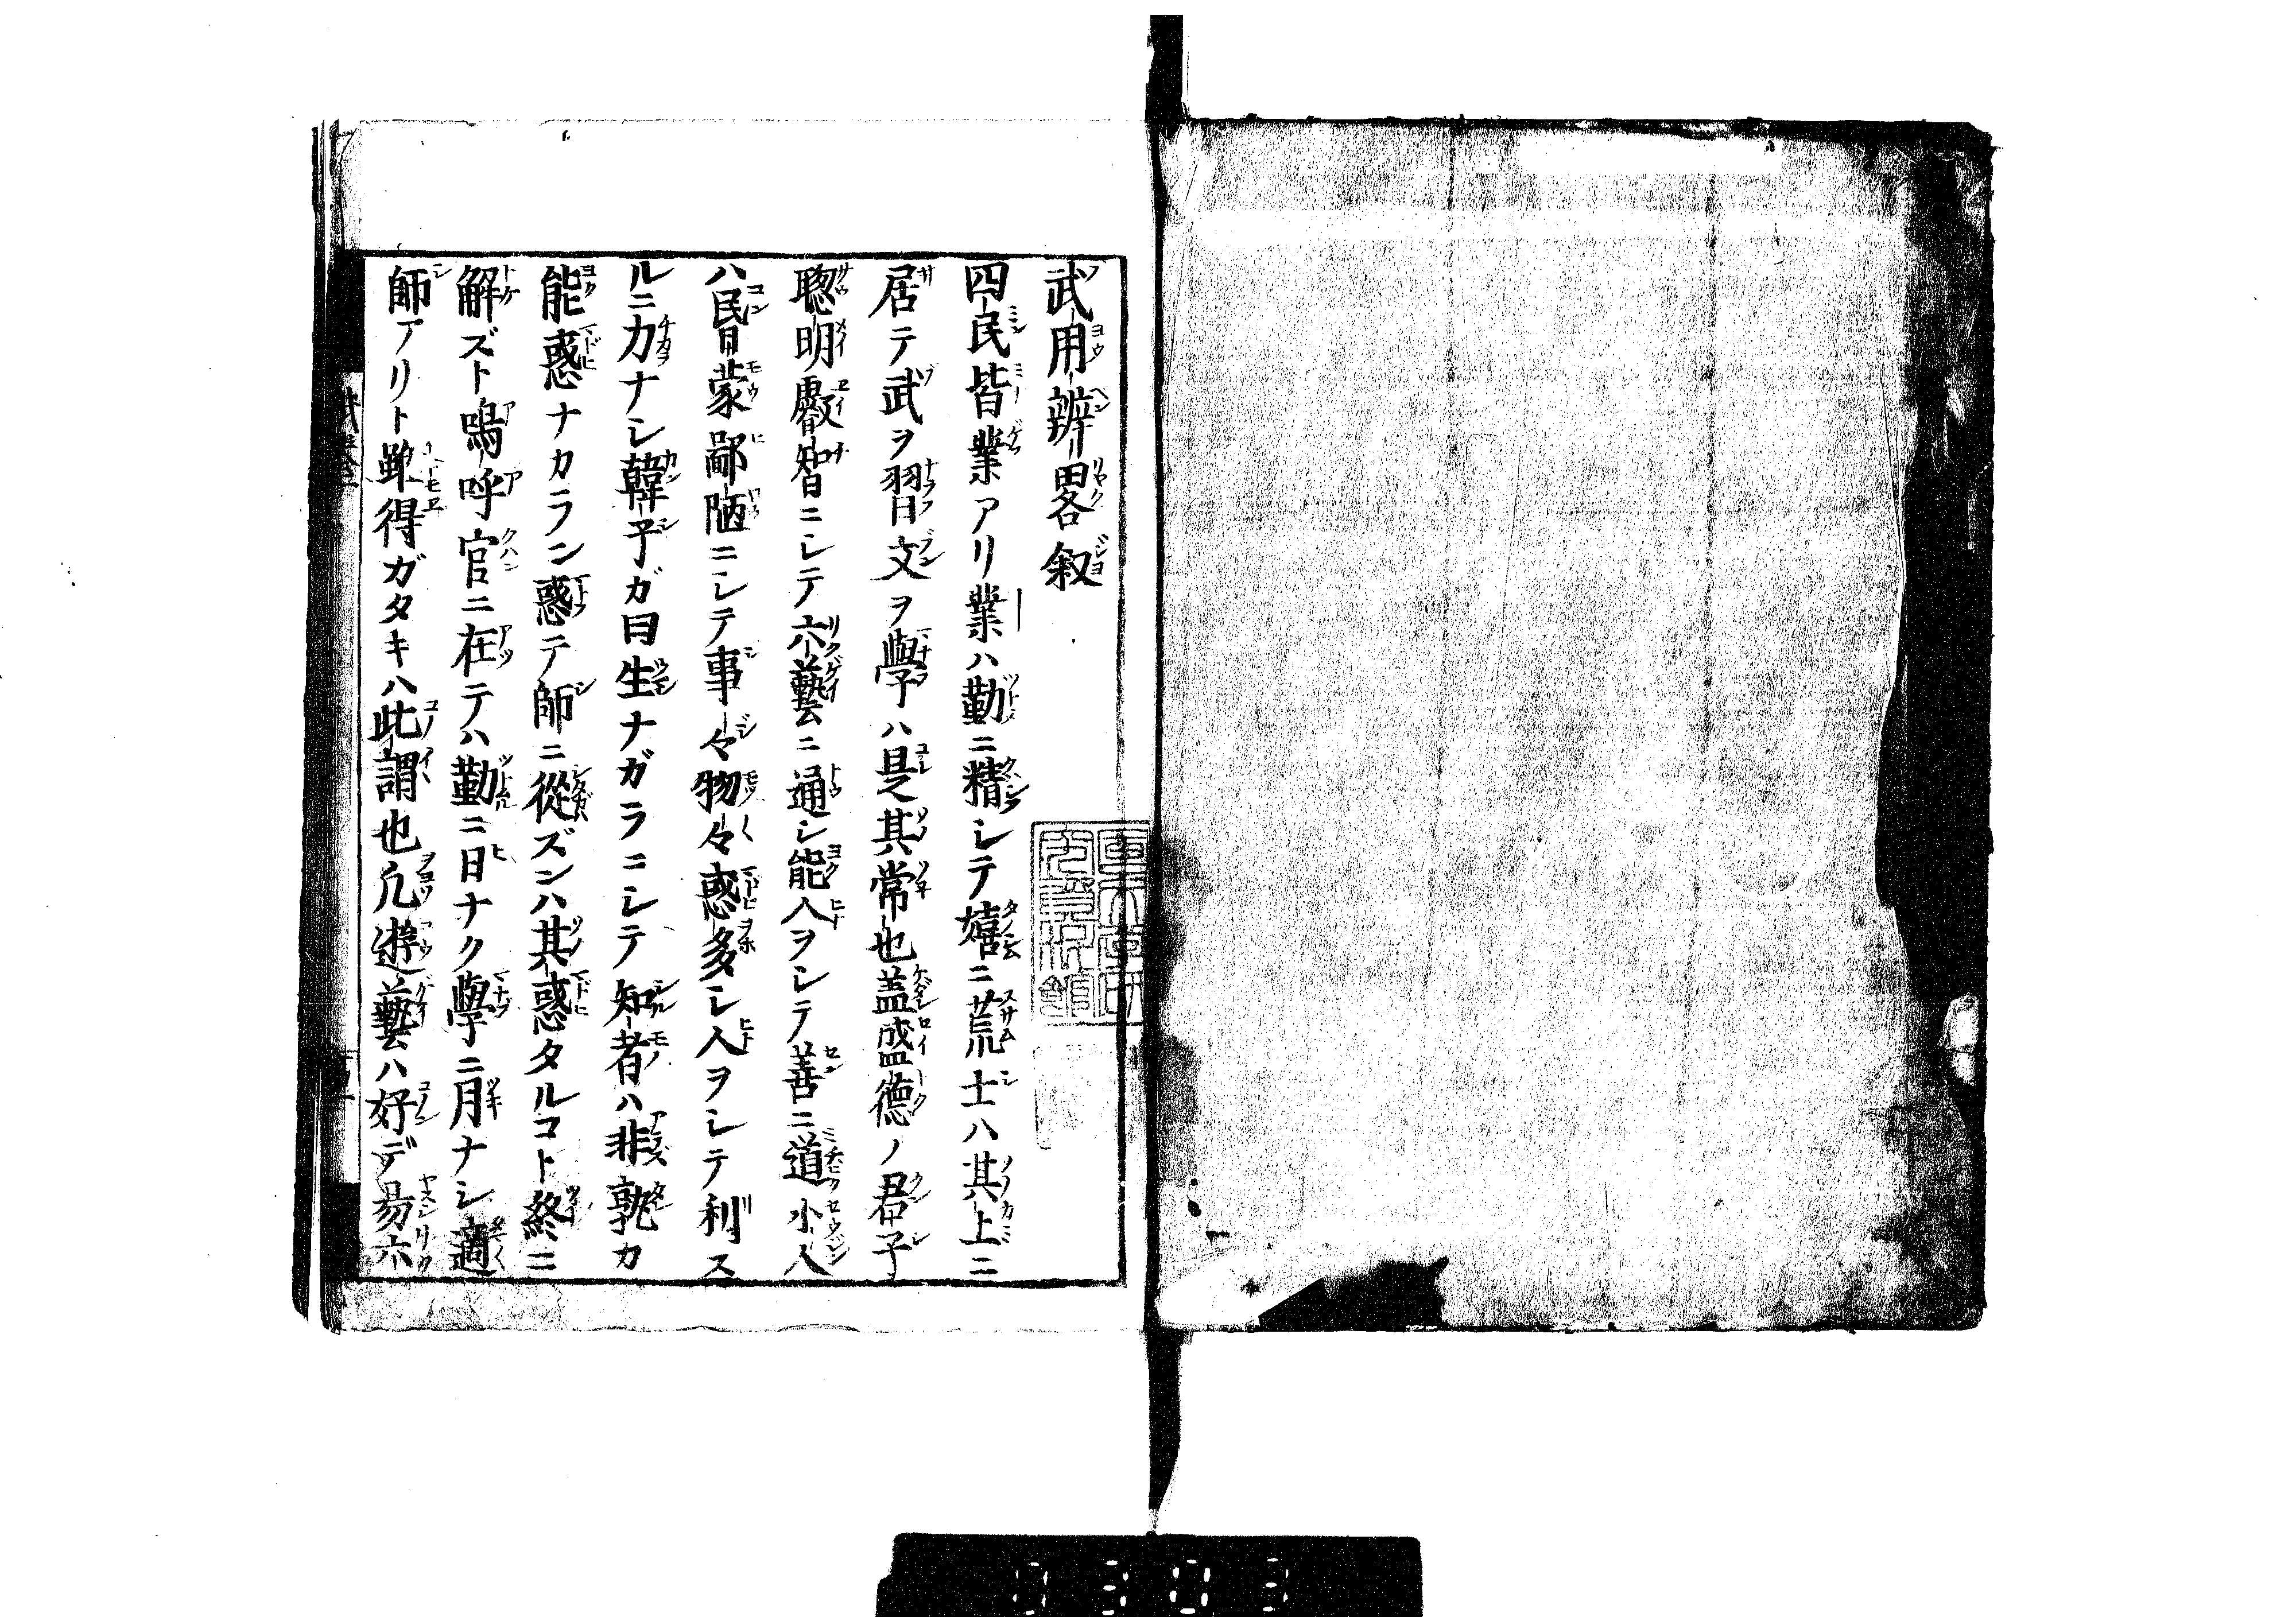 武用辨畧叙
四民皆業アリ業ハ勤ニ精シテ嬉ニ荒士ハ其上ニ
居テ武ヲ習文ヲ學ハ是其常也蓋盛德ノ君子
聰明叡智ニシテ六藝ニ通シ能人ヲシテ善ニ道小人
ハ昬蒙鄙陋ニシテ事々物々惑多シ人ヲシテ利ス
ルニ力ナシ韓子ガ曰生ナガラニシテ知者ハ非孰カ
能惑ナカラン惑テ師ニ從ズンハ其惑タルコト終ニ
解ズト嗚呼官ニ在テハ勤ニ日ナク學ニ月ナシ適
師アリト雖得ガタキハ此謂也凡遊藝ハ好デ易六